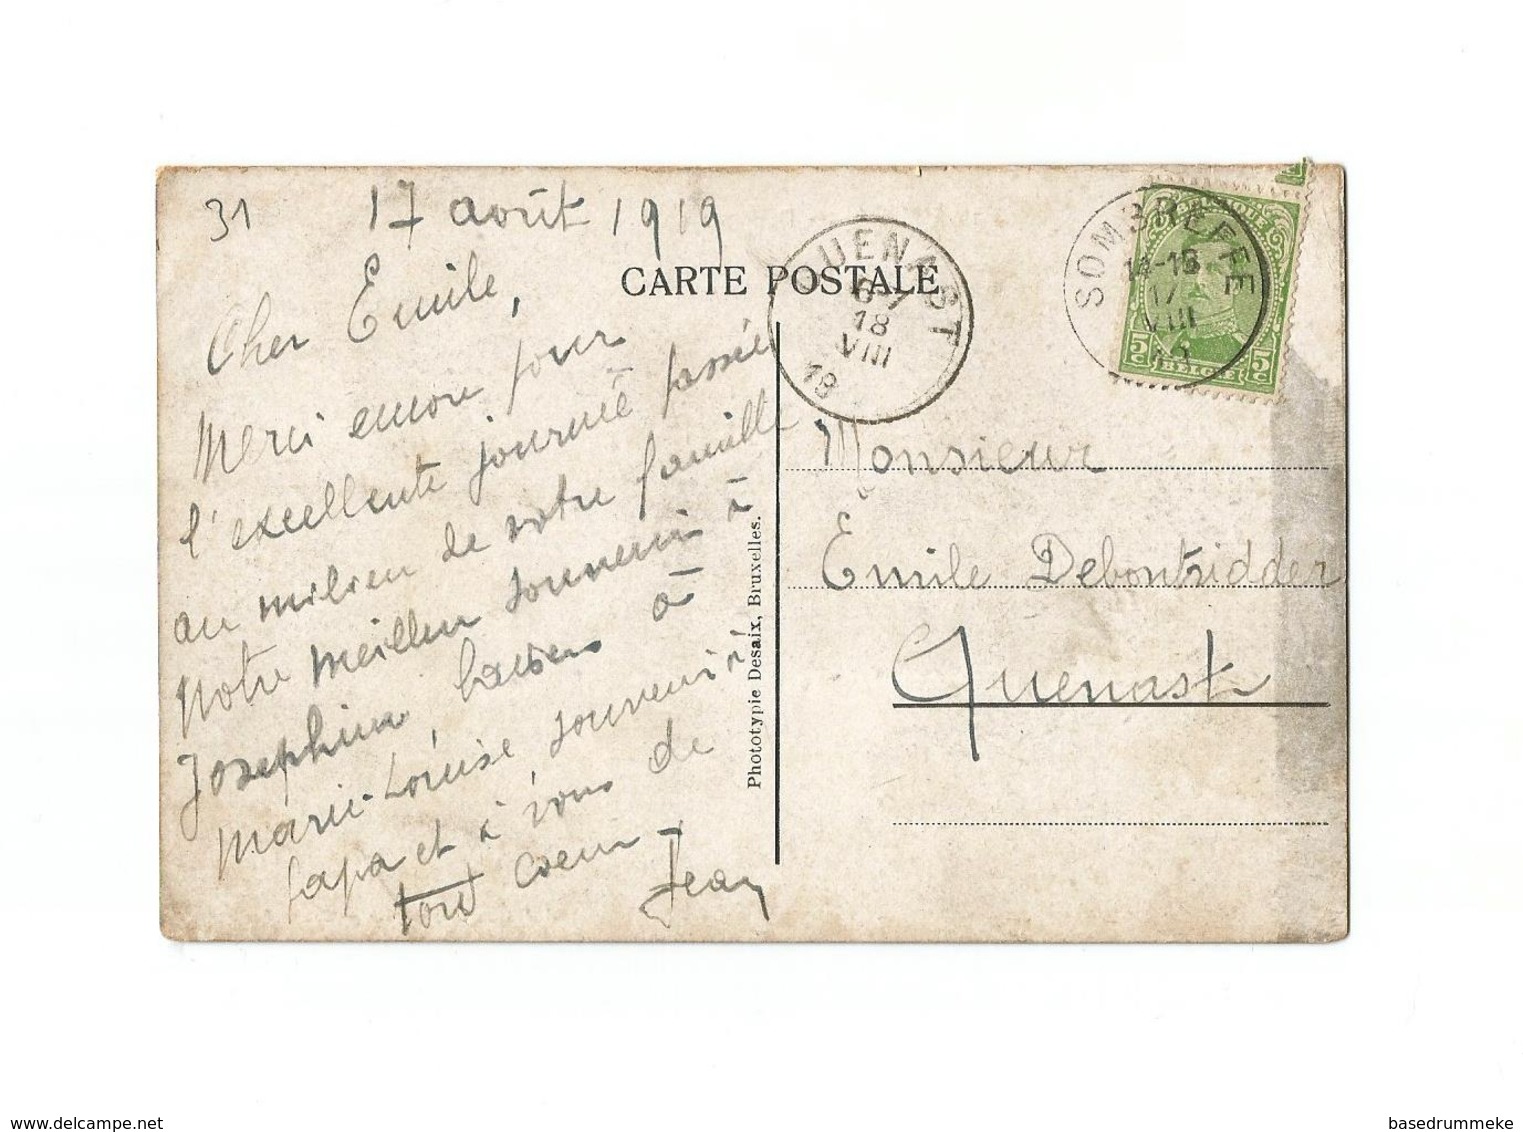 31
17 août 1919
Cher Emile,
Merci encore pour
l'excellente journée passée
au milieu de votre famille
Notre meilleur souvenir à
Josephine, baisers à
Marie-Louise, souvenir à
papa et à vous de
tout coeur,
Jean
CARTE POSTALE
QUENAST
6-7
18
VIII
19
SOMBREFFE
14-15
17
VIII
19
BELGIQUE
5c BELGIE 5c
Phototypie Desaix, Bruxelles.
Monsieur
Emile Debontridder
Quenast
www.delcampe.net
basedrummeke